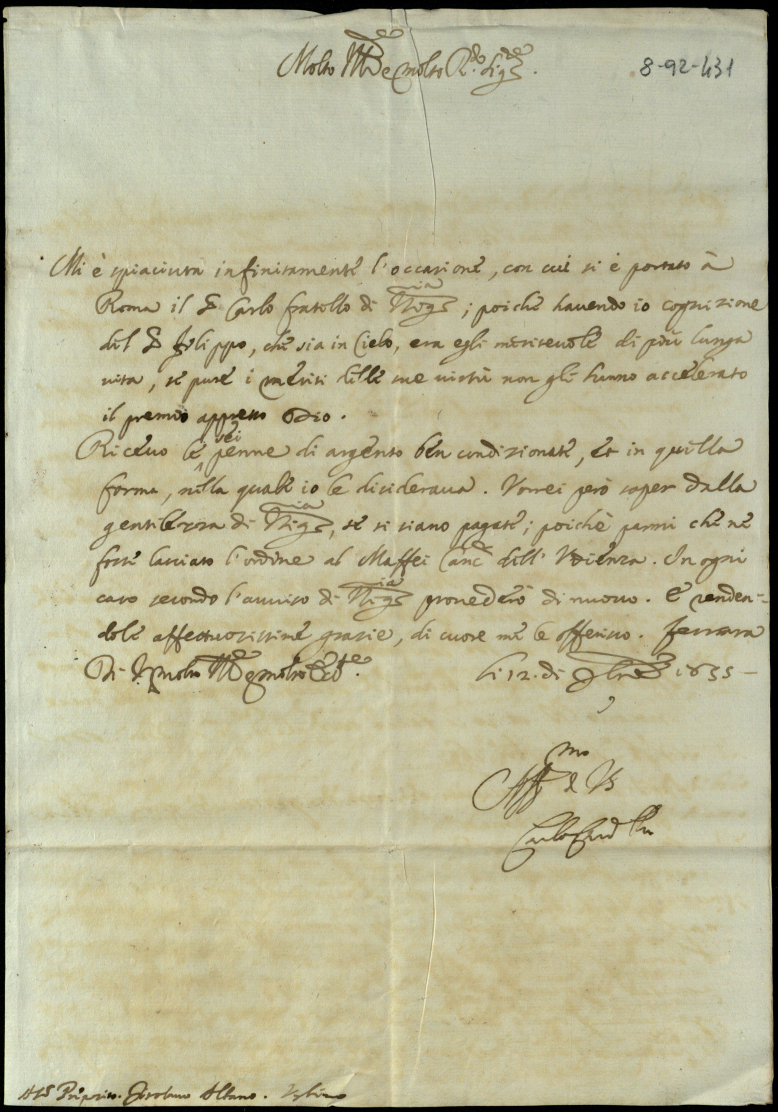 Molto Ill.re e molto R.do Sig.re
8-92-431
Mi è spiaciuta infinitamente l'occasione, con cui si è portato à
Roma il S.r Carlo fratello di V.S.; poiche havendo io cognizione
del S.r Filippo, che sia in Cielo, era egli meritevole di più lunga
vita, se pure i meriti delle sue virtù non gli hanno accelerato
il premio appresso Dio.
Ricevo le sei penne di argento ben condizionate, et in quella
forma, nella quale io le desiderava. Vorrei però saper dalla
gentilezza di V.S., se si siano pagate; poichè parmi che ne
fosse lasciato l'ordine al Maffei dell' Udienza. In ogni
caso secondo l'avviso di V.S. provederò di nuovo. E renden-
dole affettuosissime grazie, di cuore me le offerisco. Ferrara
li 12. di 1655
Di V.S. molto Ill.re e molto R.da
Aff.mo di VS
Carlo Card. Pio
Al S.r Girolamo Albano. Urbino